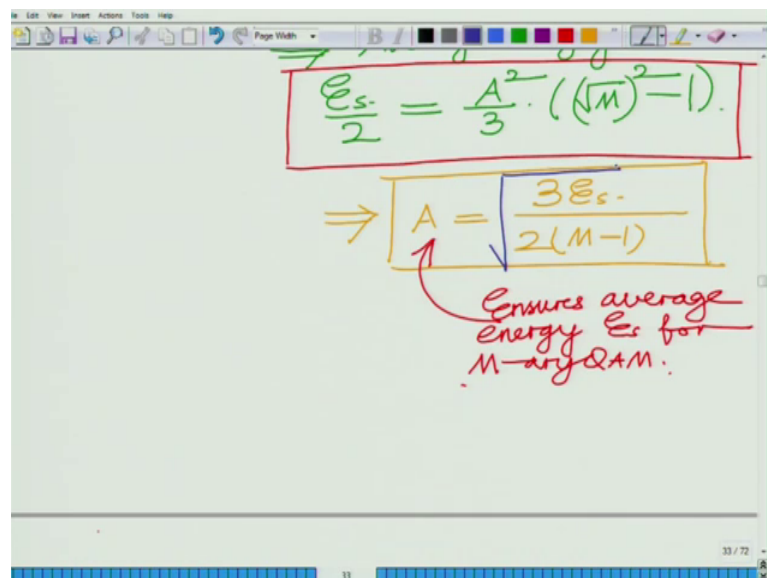 File Edit View Insert Actions Tools Help
Page Width
B I
Es/2 = A²/3 · ((√M)² − 1).
⇒ A = √(3Es / 2(M−1))
Ensures average
energy Es for
M-ary QAM.
33 / 72
33